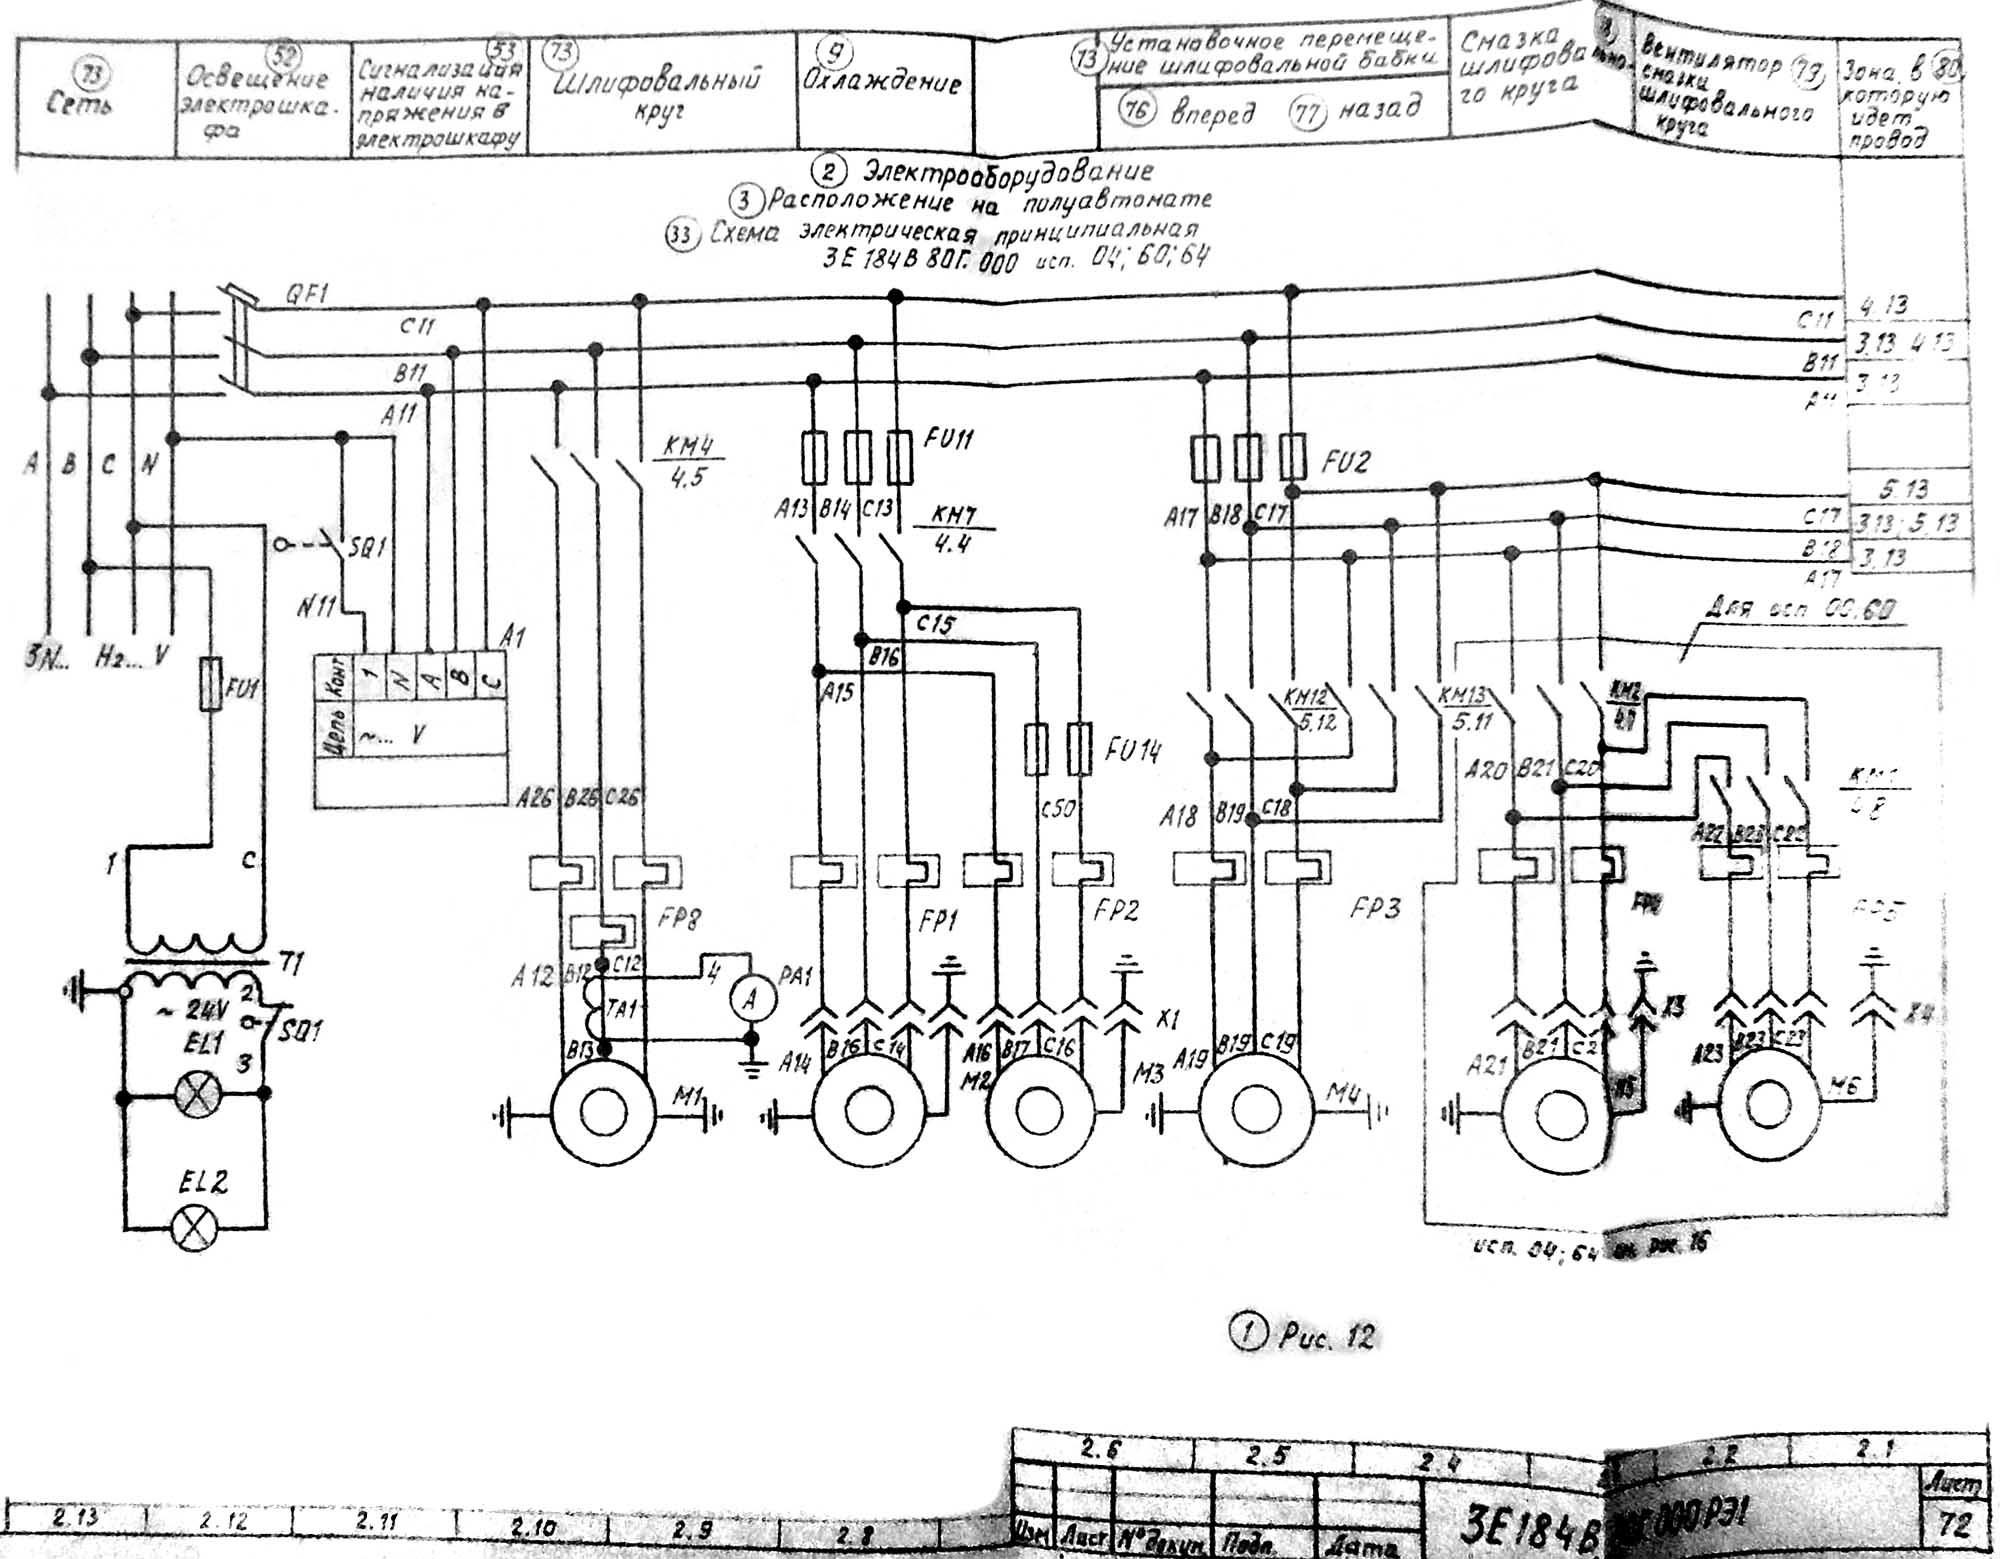 73
Сеть
52
Освещение
электрошка-
фа
53
Сигнализация
наличия на-
пряжения в
электрошкафу
73
Шлифовальный
круг
9
Охлаждение
73 Установочное перемеще-
ние шлифовальной бабки
76 вперед 77 назад
Смазка
шлифоваль-
го круга
Вентилятор 73
смазки
шлифовального
круга
Зона, в 80
которую
идет
провод
2 Электрооборудование
3 Расположение на полуавтомате
33 Схема электрическая принципиальная
3Е 184В 80Г. 000 исп. 04; 60; 64
QF1
C11
B11
A11
C11 4.13
B11 3.13 4.13
A11 3.13
A B C N
KM4
4.5
FU11
FU2
A13 B14 C13
KM7
4.4
A17 B18 C17
C17 5.13
B18 3.13; 5.13
A17 3.13
SQ1
N11
3N... Hz... V
A1
FU1
Конт 1 N A B C
Цепь ~... V
C15
B16
A15
Для исп 00; 60
KM12
5.12
KM13
5.11
KM2
FU14
C50
A26 B26 C26
A18 B19 C18
A20 B21 C20
A22 B23
4.8
1 C
FP8
FP1
FP2
FP3
T1
~ 24V
2
SQ1
EL1
3
EL2
A12 B12 C12
TA1
B13
4
PA1
A
A14 B16 C14
A16 B17 C16
X1
A19 B19 C19
A21 B21
X3
A23 B23 C23
X4
M1
M2
M3
M4
M6
исп. 04; 64 рис. 16
1 Рис. 12
2.6 2.5 2.4 2.2 2.1
2.13 2.12 2.11 2.10 2.9 2.8
Изм Лист № докум. Подп. Дата
3Е184В .000РЭ1
Лист
72